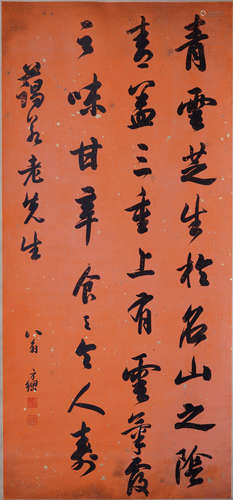 青雲芝生於名山之陰
青蓋三重上有雲氣覆
之味甘辛食之令人壽
老先生
翁方綱